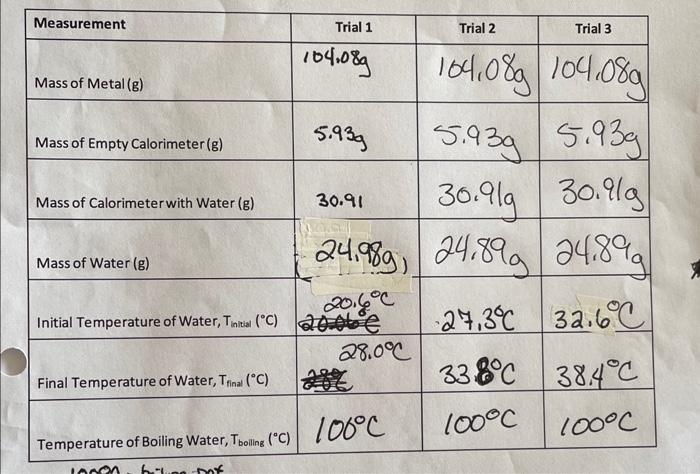 Measurement Trial 1 Trial 2 Trial 3
Mass of Metal (g) 104.08g 104.08g 104.08g
Mass of Empty Calorimeter (g) 5.93g 5.93g 5.93g
Mass of Calorimeter with Water (g) 30.91 30.91g 30.91g
Mass of Water (g) 24.98g 24.89g 24.89g
20.6°C
Initial Temperature of Water, Tinitial (°C) 27.3°C 32.6°C
28.0°C
Final Temperature of Water, Tfinal (°C) 33.8°C 38.4°C
Temperature of Boiling Water, Tboiling (°C) 100°C 100°C 100°C